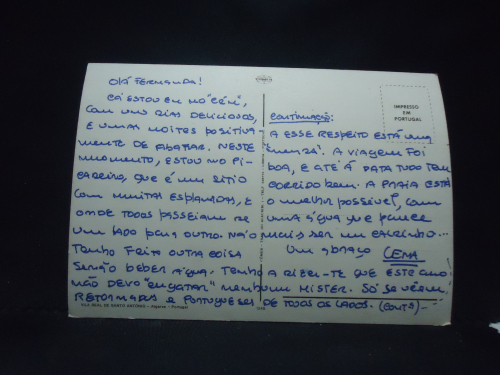 OLÁ FERNANDA!
CÁ ESTOU EM NO "CÉU",
COM UNS DIAS DELICIOSOS,
E UMAS NOITES POSITIVA
MENTE DE ABAFAR. NESTE
MOMENTO, ESTOU NO PI-
CADEIRO, QUE É UM SITIO
COM MUITAS ESPLANADAS, E
ONDE TODOS PASSEIAM DE
UM LADO PARA OUTRO. NÃO
TENHO FEITO OUTRA COISA
SENÃO BEBER ÁGUA. TENHO A DIZER-TE QUE ESTE ANO
NÃO DEVO "ENGATAR" NENHUM MISTER. SÓ SE VÊEM
REFORMADOS E PORTUGUESES DE TODOS OS LADOS. (CONTª)
VILA REAL DE SANTO ANTÓNIO - Algarve - Portugal
IMPRESSO
EM
PORTUGAL
CONTINUAÇÃO:
A ESSE RESPEITO ESTÁ UMA
A VIAGEM FOI
BOA, E ATÉ Á DATA TUDO TEM
CORRIDO BEM. A PRAIA ESTÁ
O MELHOR POSSIVEL, COM
UMA ÁGUA QUE PARECE
MAIS SER UM CALDINHO...
UM ABRAÇO LENA